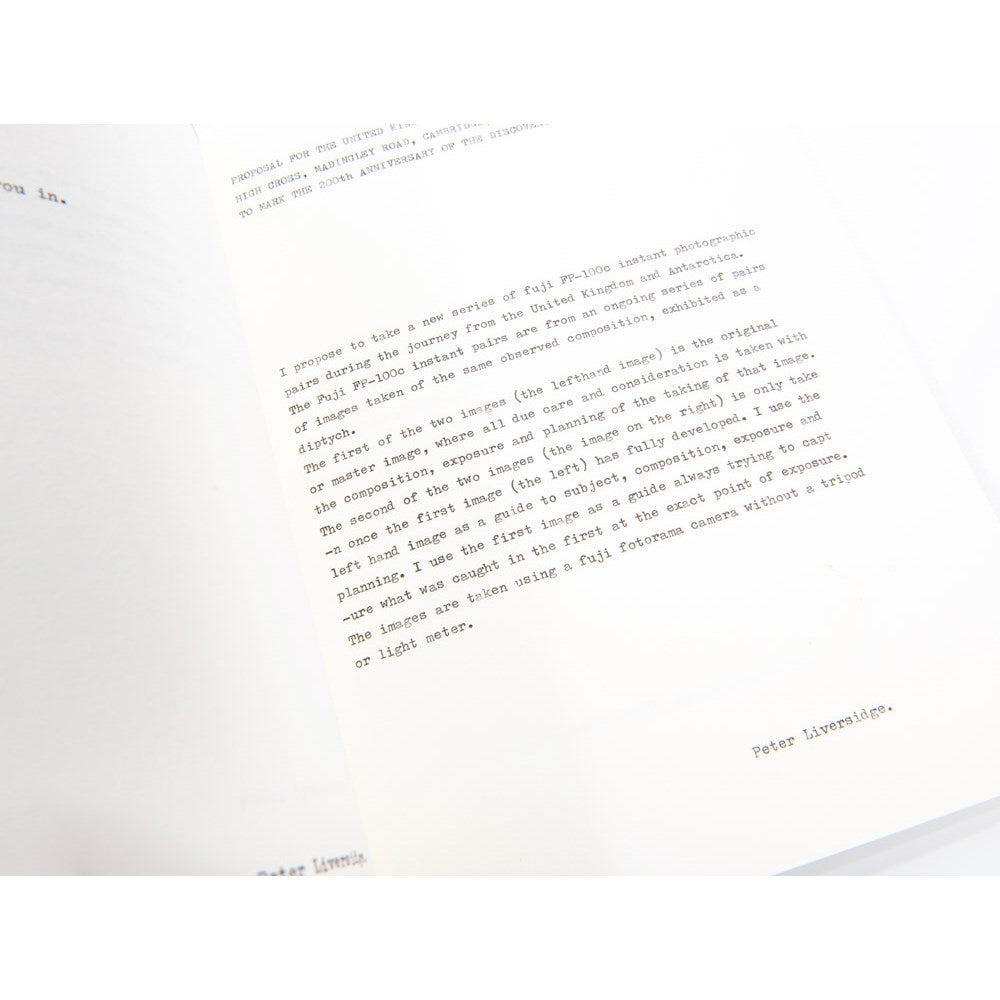 you in.
Peter Liversidge.
PROPOSAL FOR THE UNITED
HIGH CROSS, MADINGLEY ROAD, CAMBRIDGE,
TO MARK THE 200th ANNIVERSARY OF THE
I propose to take a new series of fuji FP-100c instant photographic
pairs during the journey from the United Kingdom and Antarctica.
The Fuji FP-100c instant pairs are from an ongoing series of pairs
of images taken of the same observed composition, exhibited as a
diptych.
The first of the two images (the lefthand image) is the original
or master image, where all due care and consideration is taken with
the composition, exposure and planning of the taking of that image.
The second of the two images (the image on the right) is only take
-n once the first image (the left) has fully developed. I use the
left hand image as a guide to subject, composition, exposure and
planning. I use the first image as a guide always trying to capt
-ure what was caught in the first at the exact point of exposure.
The images are taken using a fuji fotorama camera without a tripod
or light meter.
Peter Liversidge.